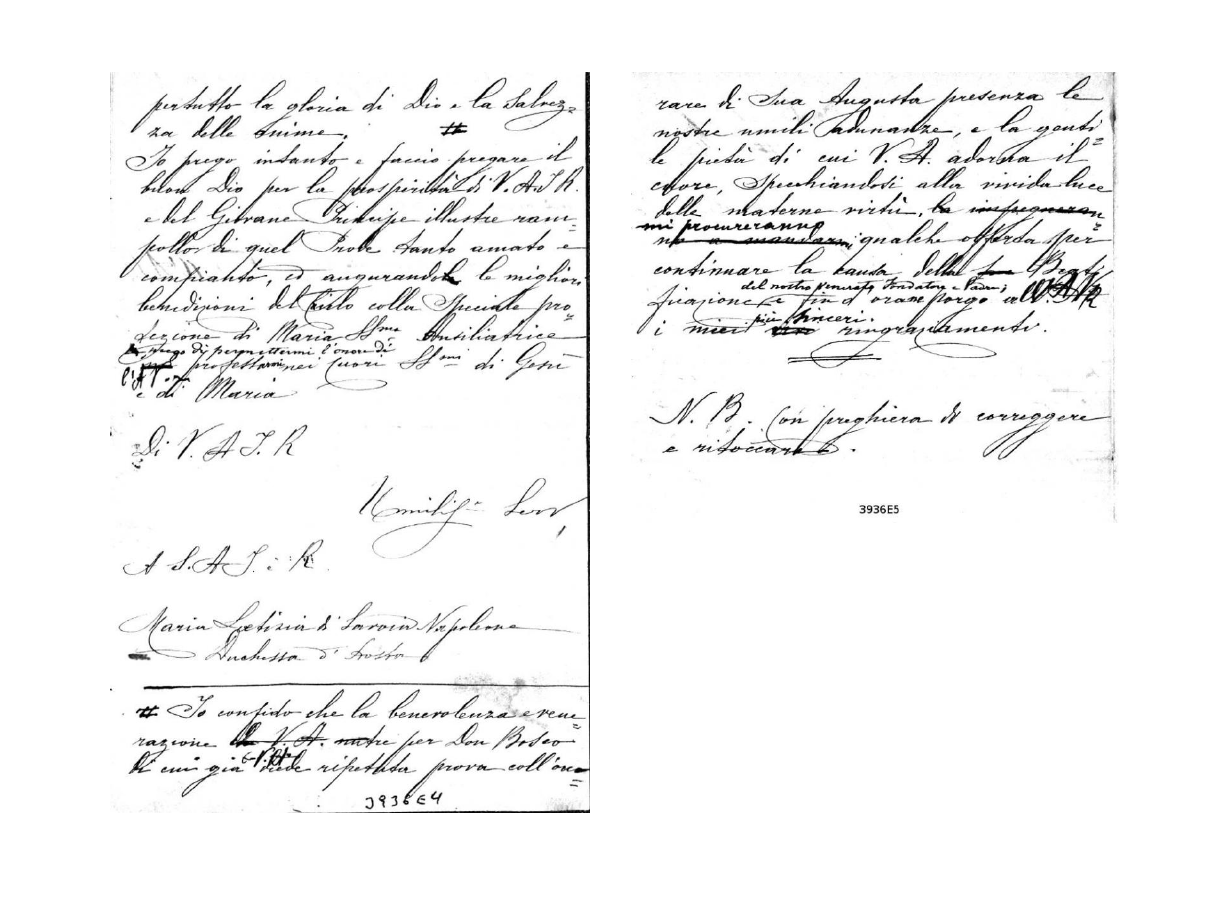 pertutto la gloria di Dio e la salvez=
za delle anime. #
Io prego intanto e faccio pregare il
buon Dio per la prosperità di V. A. I. R.
e del Giovane Principe illustre ram=
pollo di quel Prode tanto amato e
compianto, ed augurandole le migliori
benedizioni del Cielo colla speciale pro=
tezione di Maria SS.ma Consiliatrice
prego di permettermi l'onore di
professarmi nei Cuori SS.mi di Gesù
e di Maria
Di V. A. I. R
Umiliss.mo Serv
A S. A. I. e R.
Maria Lætizia di Savoia Napoleone
Duchessa d'Aosta
# Io confido che la benevolenza e vene=
razione di V. A. per Don Bosco
V. A.
di cui già diede ripetuta prova coll'ono=
3936E4
rare di Sua Augusta presenza le
nostre umili adunanze, e la genti=
le pietà di cui V. A. adorna il
cuore, specchiandosi alla vivida luce
delle materne virtù, la impegneran
mi procureranno
no a mandarmi qualche offerta per
continuare la causa della Beati
del nostro Venerato Fondatore e Padre;
ficazione e fin d'ora ne porgo a V. A. I. R
più sinceri
i miei ringraziamenti.
N. B. Con preghiera di correggere
e ritoccare.
3936E5